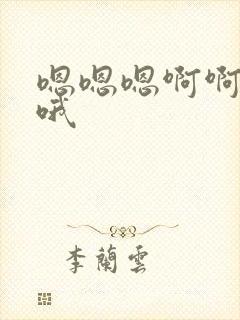 嗯嗯嗯啊啊
哦
李蘭雲